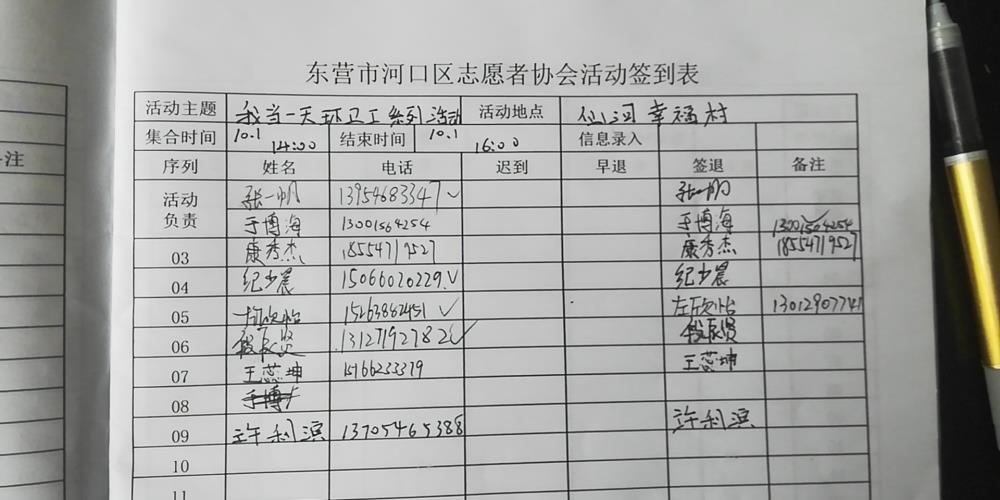 东营市河口区志愿者协会活动签到表
活动主题 我当一天环卫工系列活动 活动地点 仙河幸福村
集合时间 10.1 14:00 结束时间 10.1 16:00 信息录入
序列 姓名 电话 迟到 早退 签退 备注
活动负责 张一帆 13954683347 ✓ 张一帆
于博海 13001564254 于博海 13001564254
03 康秀杰 18554719527 康秀杰 18554719527
04 纪少晨 15066020229 ✓ 纪少晨
05 15263862451 ✓ 左欣怡 13012907741
06 段辰贤 13127192782 ✓ 段辰贤
07 王蕊坤 15166233379 王蕊坤
08 于博
09 许利滨 13705465388 许利滨
10
11
注